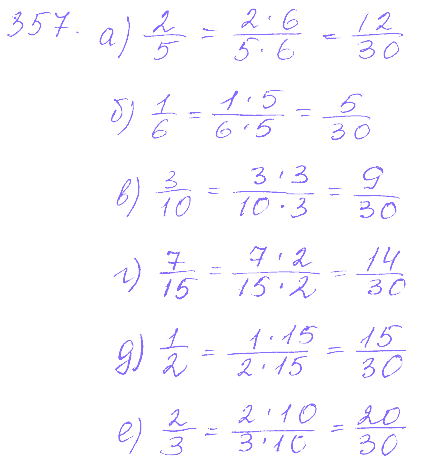 357. а) 2/5 = 2·6/5·6 = 12/30
б) 1/6 = 1·5/6·5 = 5/30
в) 3/10 = 3·3/10·3 = 9/30
г) 7/15 = 7·2/15·2 = 14/30
д) 1/2 = 1·15/2·15 = 15/30
е) 2/3 = 2·10/3·10 = 20/30